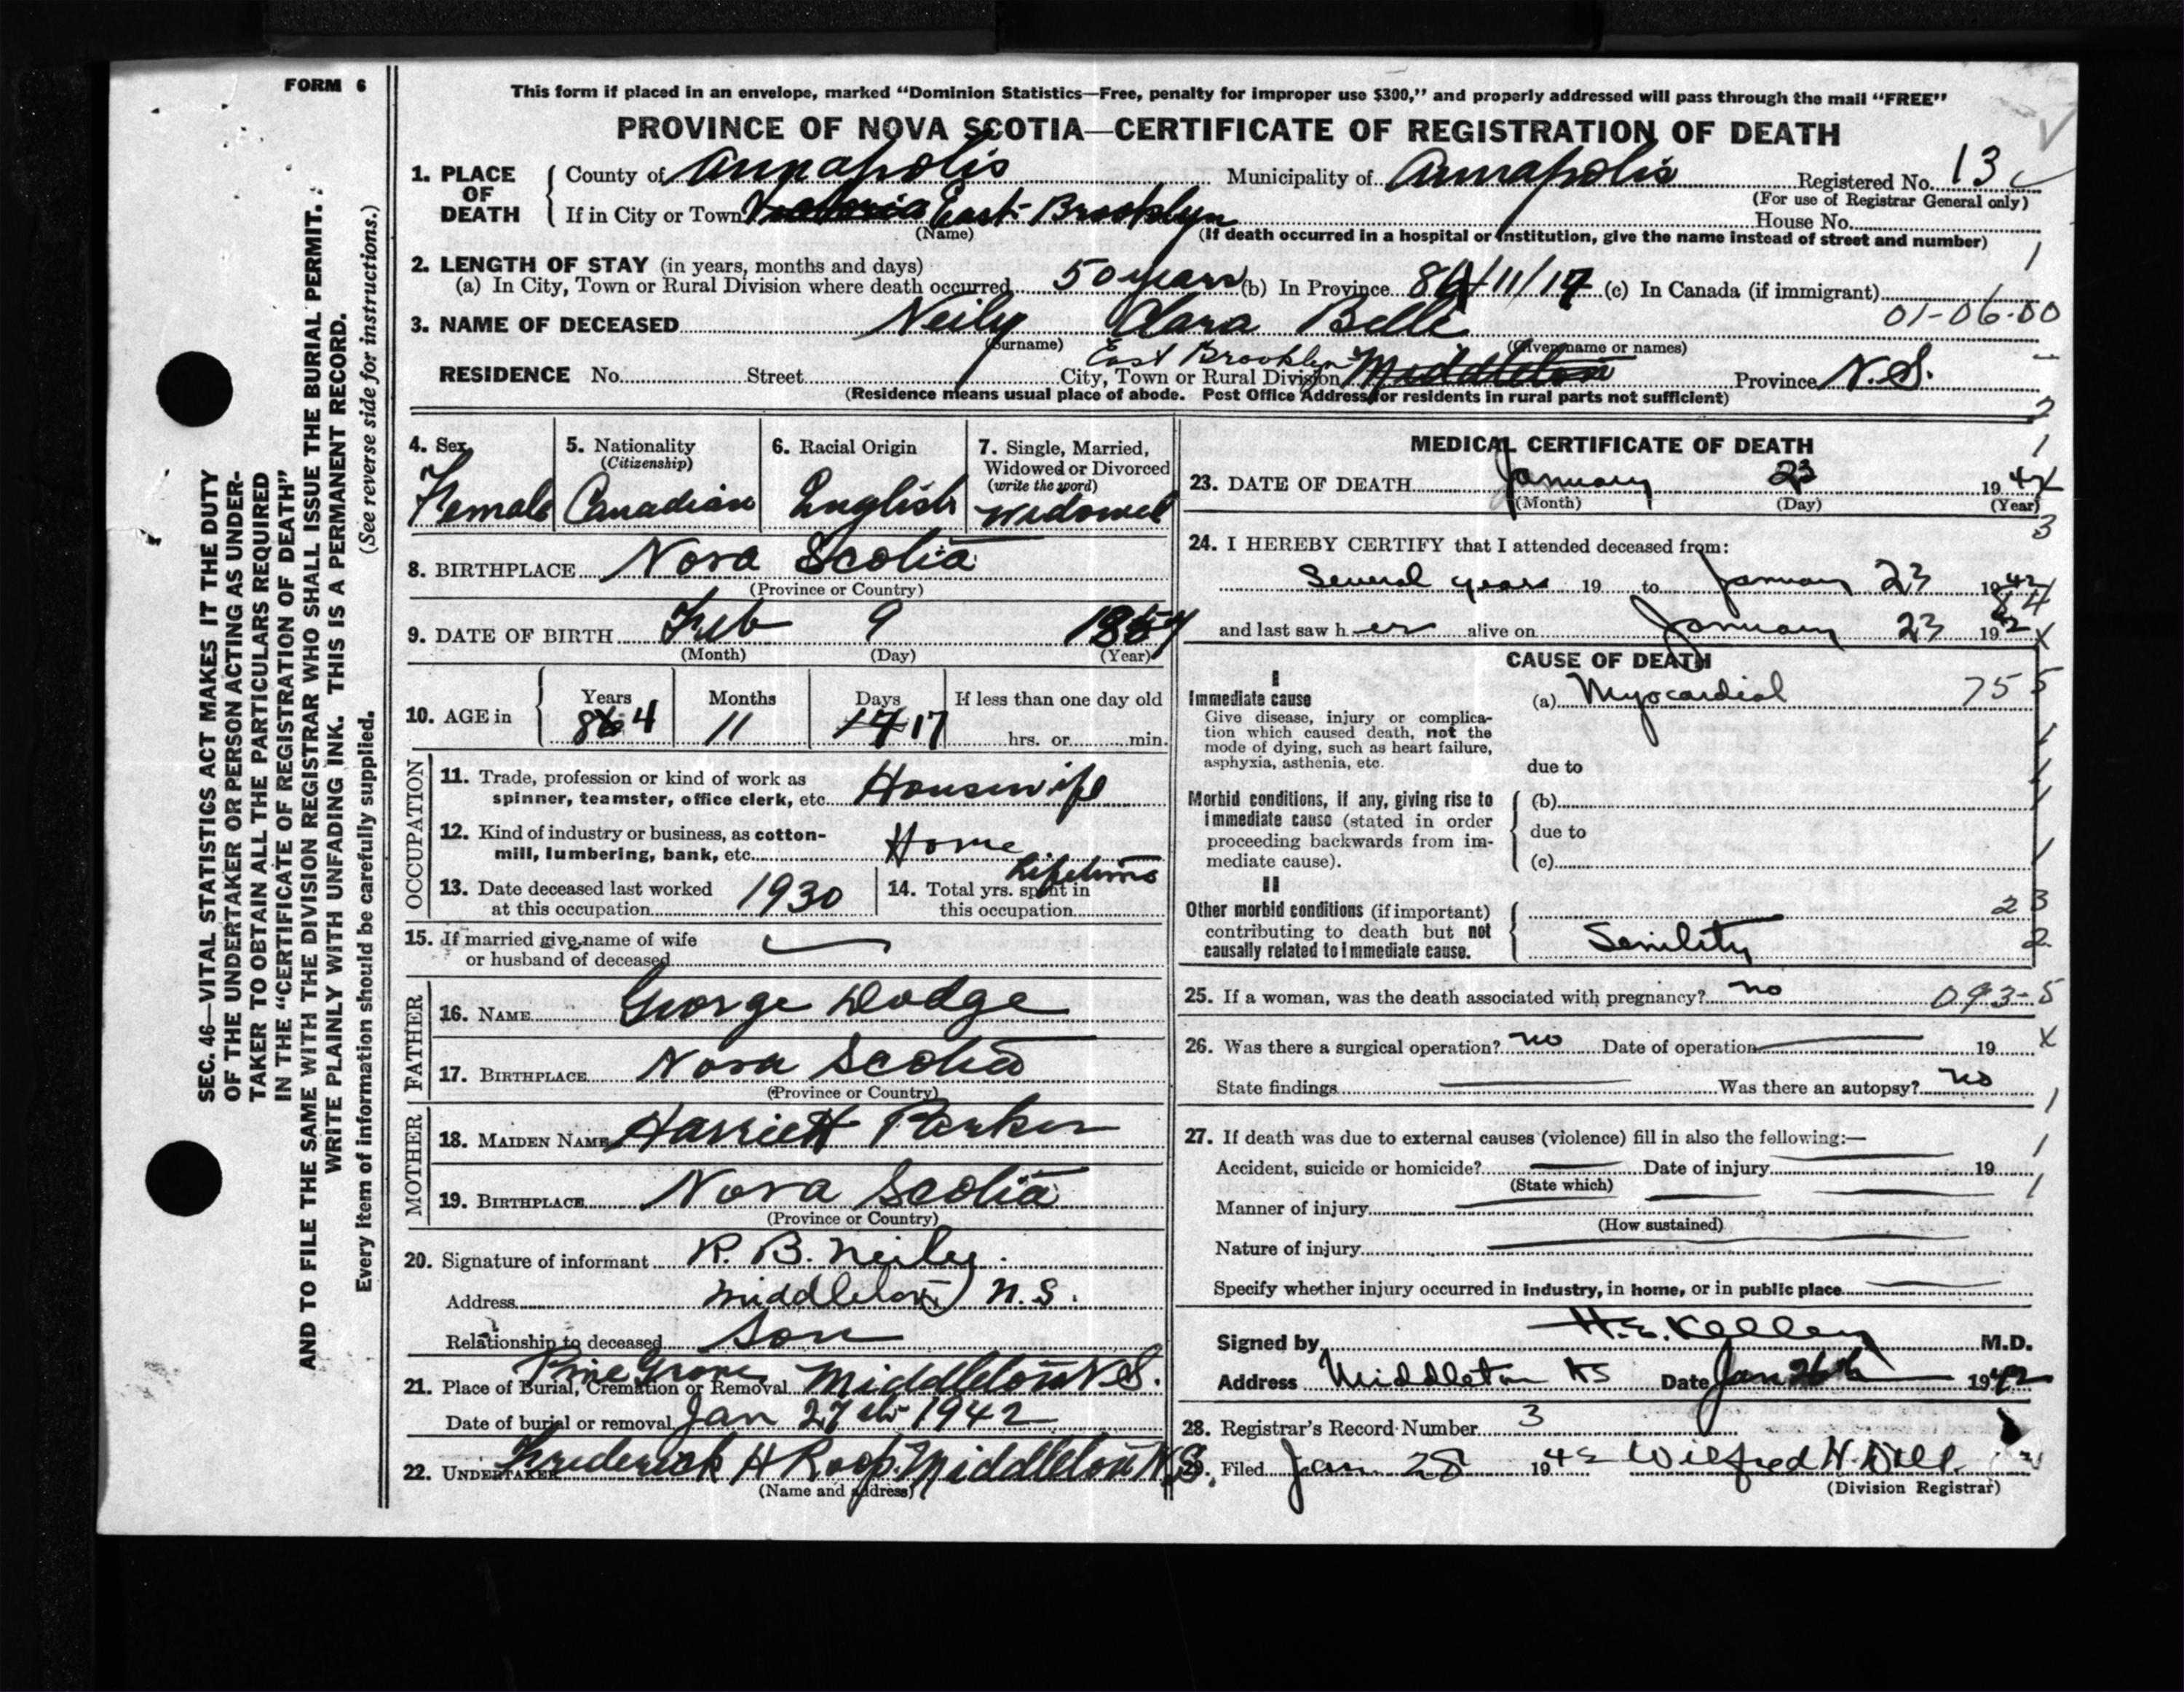 FORM 6
This form if placed in an envelope, marked "Dominion Statistics—Free, penalty for improper use $300," and properly addressed will pass through the mail "FREE"
PROVINCE OF NOVA SCOTIA—CERTIFICATE OF REGISTRATION OF DEATH
1. PLACE OF DEATH County of Annapolis Municipality of Annapolis Registered No. 13
(For use of Registrar General only)
If in City or Town East Brooklyn House No.
(Name) (If death occurred in a hospital or institution, give the name instead of street and number)
2. LENGTH OF STAY (in years, months and days)
(a) In City, Town or Rural Division where death occurred 50 years (b) In Province 84/11/17 (c) In Canada (if immigrant)
01-06-00
3. NAME OF DECEASED Neily Clara Belle
(Surname) (Given name or names)
East Brooklyn
RESIDENCE No. Street City, Town or Rural Division Middleton Province N.S.
(Residence means usual place of abode. Post Office Address for residents in rural parts not sufficient)
4. Sex Female
5. Nationality (Citizenship) Canadian
6. Racial Origin English
7. Single, Married, Widowed or Divorced (write the word) Widowed
8. BIRTHPLACE Nova Scotia
(Province or Country)
9. DATE OF BIRTH Feb 9 1857
(Month) (Day) (Year)
10. AGE in Years 84 Months 11 Days 17 If less than one day old
hrs. or min.
OCCUPATION
11. Trade, profession or kind of work as spinner, teamster, office clerk, etc. Housewife
12. Kind of industry or business, as cotton-mill, lumbering, bank, etc. Home
13. Date deceased last worked at this occupation 1930
14. Total yrs. spent in this occupation Lifetime
15. If married give name of wife or husband of deceased
FATHER
16. NAME George Dodge
17. BIRTHPLACE Nova Scotia
(Province or Country)
MOTHER
18. MAIDEN NAME Harriett Parker
19. BIRTHPLACE Nova Scotia
(Province or Country)
20. Signature of informant R. B. Neily.
Address Middleton N.S.
Relationship to deceased Son
21. Place of Burial, Cremation or Removal Pine Grove Middleton N.S.
Date of burial or removal Jan 27th 1942
22. UNDERTAKER Frederick H Roop. Middleton N.S.
(Name and address)
MEDICAL CERTIFICATE OF DEATH
23. DATE OF DEATH January 23 1942
(Month) (Day) (Year)
24. I HEREBY CERTIFY that I attended deceased from:
Several years 19 to January 23 1942
and last saw her alive on January 23 1942
CAUSE OF DEATH
I
Immediate cause
Give disease, injury or complication which caused death, not the mode of dying, such as heart failure, asphyxia, asthenia, etc.
(a) Myocardial 75
due to
Morbid conditions, if any, giving rise to immediate cause (stated in order proceeding backwards from immediate cause).
(b)
due to
(c)
II
Other morbid conditions (if important) contributing to death but not causally related to immediate cause.
Senility
25. If a woman, was the death associated with pregnancy? no 093-5
26. Was there a surgical operation? no Date of operation 19
State findings Was there an autopsy? no
27. If death was due to external causes (violence) fill in also the following:—
Accident, suicide or homicide? Date of injury 19
(State which)
Manner of injury
(How sustained)
Nature of injury
Specify whether injury occurred in industry, in home, or in public place
Signed by H. E. Kelley M.D.
Address Middleton NS Date Jan 26th 1942
28. Registrar's Record Number 3
29. Filed Jan. 28 1942 Wilfred H.
(Division Registrar)
SEC. 46—VITAL STATISTICS ACT MAKES IT THE DUTY
OF THE UNDERTAKER OR PERSON ACTING AS UNDER-
TAKER TO OBTAIN ALL THE PARTICULARS REQUIRED
IN THE "CERTIFICATE OF REGISTRATION OF DEATH"
AND TO FILE THE SAME WITH THE DIVISION REGISTRAR WHO SHALL ISSUE THE BURIAL PERMIT.
WRITE PLAINLY WITH UNFADING INK. THIS IS A PERMANENT RECORD.
Every item of information should be carefully supplied. (See reverse side for instructions.)